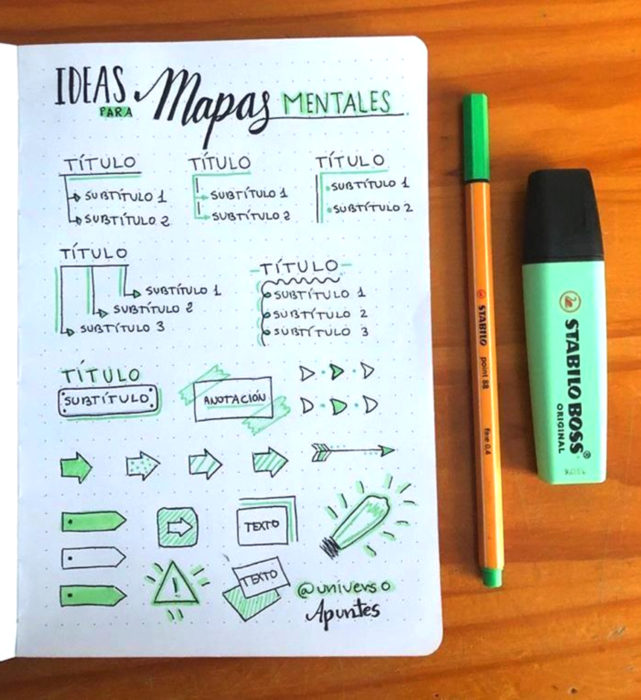 IDEAS
PARA
Mapas MENTALES
TÍTULO
SUBTÍTULO 1
SUBTÍTULO 2
TÍTULO
SUBTÍTULO 1
SUBTÍTULO 2
TÍTULO
SUBTÍTULO 1
SUBTÍTULO 2
TÍTULO
SUBTÍTULO 1
SUBTÍTULO 2
SUBTÍTULO 3
TÍTULO
SUBTÍTULO 1
SUBTÍTULO 2
SUBTÍTULO 3
TÍTULO
SUBTÍTULO
ANOTACIÓN
TEXTO
!
TEXTO
@universo
Apuntes
STABILO point 88 fine 0,4
STABILO BOSS
ORIGINAL